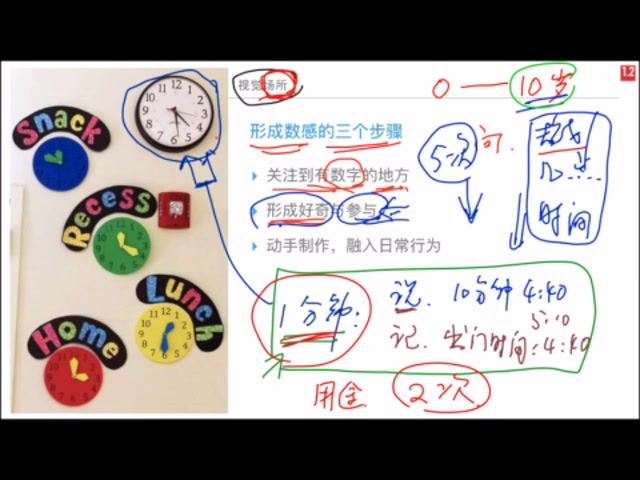 视觉场所
1.2
0 — 10岁
形成数感的三个步骤
关注到有数字的地方
形成好奇与参与
动手制作，融入日常行为
5次
问.
几.....
时间
1分钟:
说. 10分钟 4:40
5:10
记. 出门时间:4:40
用途 2次
Snack
Recess
Lunch
Home